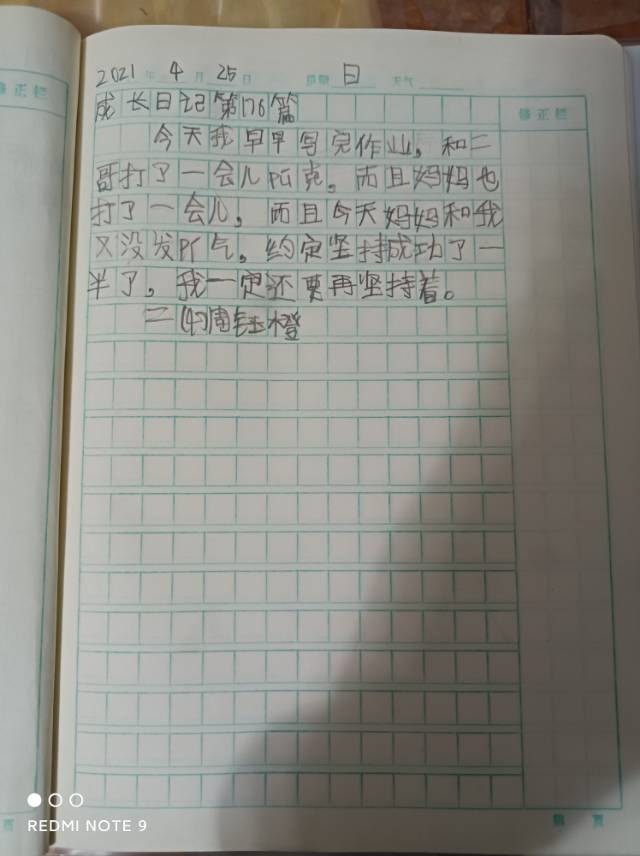 2021 年 4 月 25 日 星期 日 天气
修正栏
成长日记第176篇
修正栏
今天我早早写完作业，和二
哥打了一会儿pú克。而且妈妈也
打了一会儿，而且今天妈妈和我
又没发Pí气。约定坚持成功了一
半了。我一定还要再坚持着。
二(4)周钰橙
REDMI NOTE 9
页
第 页